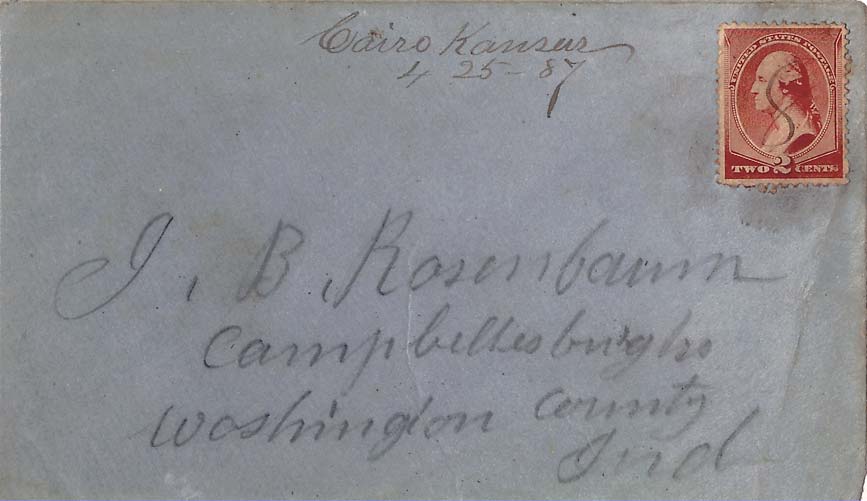 Cairo Kansas
4 25-87
UNITED STATES POSTAGE
TWO 2 CENTS
J. B. Rosenbaum
Campbellesburghs
Washington County
Ind